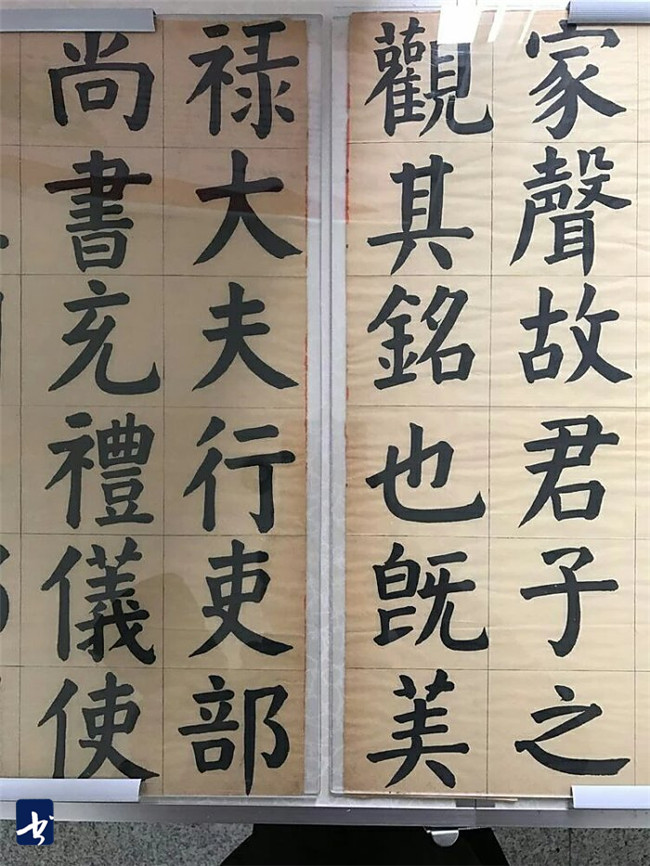 家聲故君子之
觀其銘也既美
禄大夫行吏部
尚書充禮儀使